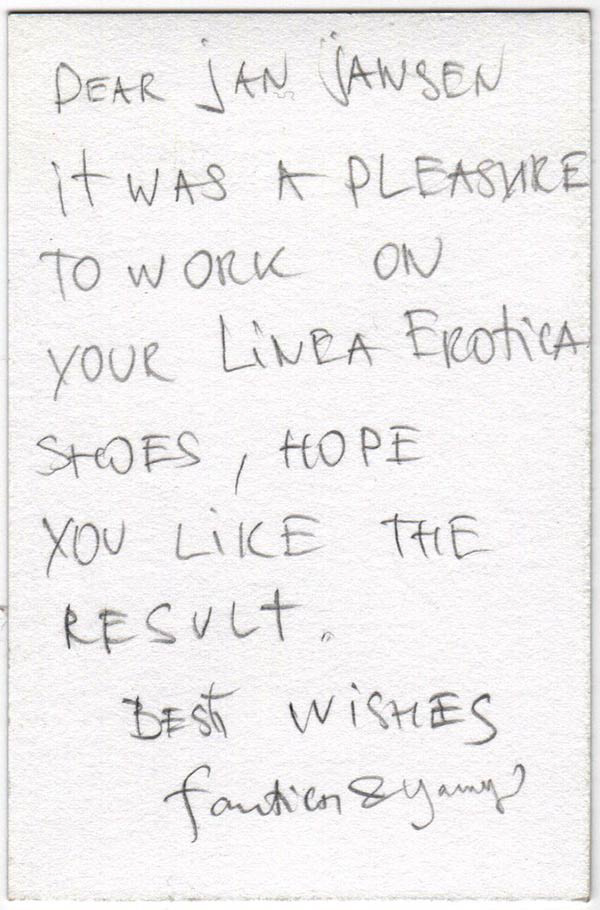 DEAR JAN JANSEN
it WAS A PLEASURE
TO WORK ON
YOUR LiNEA EROTiCA
SHOES, HOPE
YOU LiKE THE
RESULT.
BEST WiSHES
&